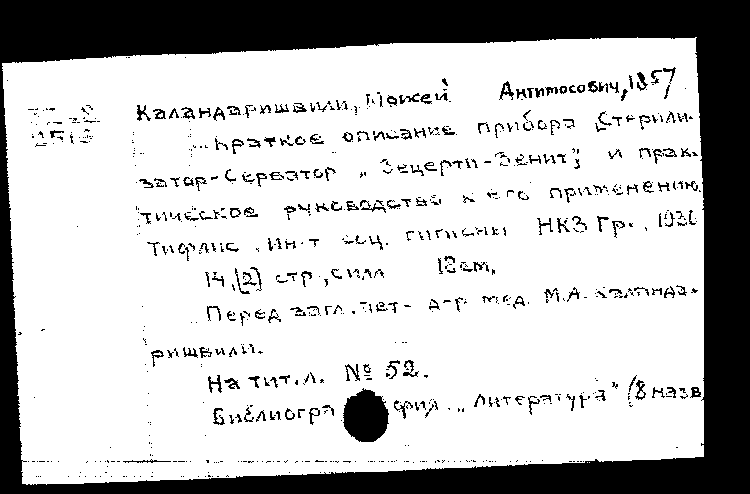 Каландаришвили, Моисей Антимосович, 1857
Краткое описание прибора „Стерили-
затор-Серватор „Зецерти-Зенит", и прак-
тическое руководство к его применению.
Тифлис, Ин-т соц. гигиены НКЗ Гр., 
14,[2] стр., с илл 18 см.
Перед загл. авт- д-р мед. М.А. Каланда-
ришвили.
На тит.л. № 52.
Библиография „Литература" (8 назв